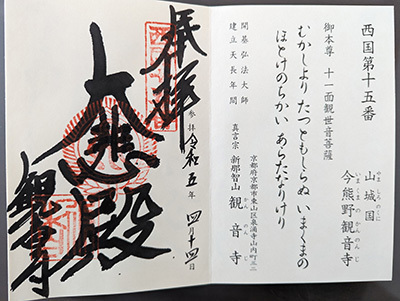 西国第十五番
山城国
やましろのくに
今熊野 観音寺
いまくまの かんのんじ
御本尊 十一面観世音菩薩
むかしより たつともしらぬ いまくまの
ほとけのちかい あらたなりけり
開基 弘法大師
建立 天長年間
京都府京都市東山区泉涌寺山内町三二
真言宗 新那智山 観音寺
かんのんじ
奉拝
参拝 令和五年 四月十四日
大悲殿
観音寺